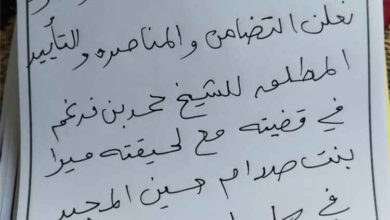 نعلن التضامن والمناصره والتأييد
المطلق للشيخ حمد بن فدغم
في قضيته مع لحيقته ميرا
بنت صدام حسين المجيد
في